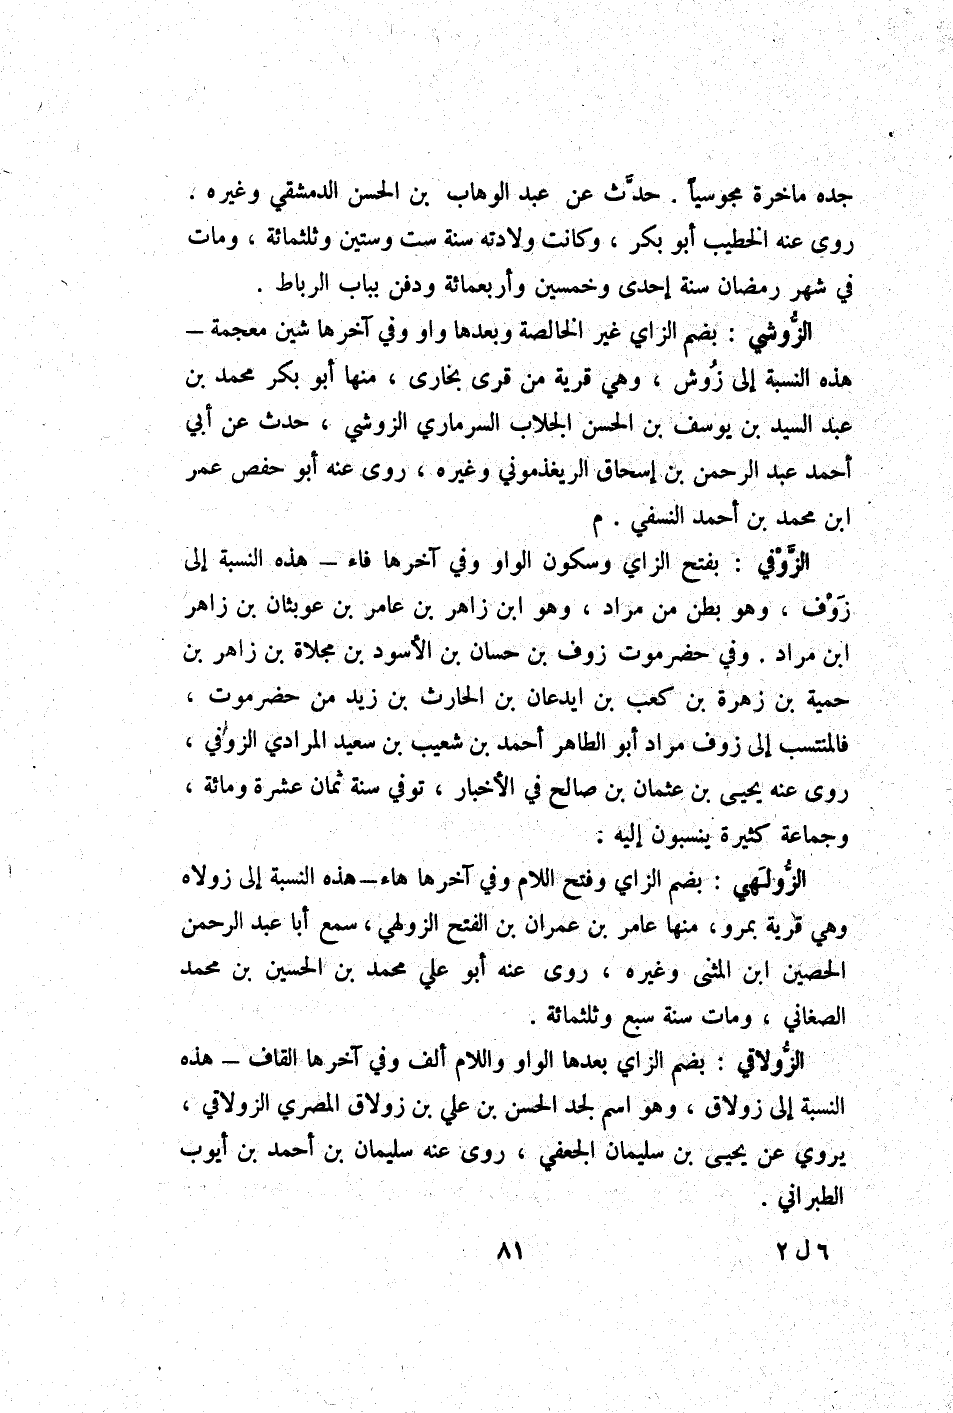 جده ماخرة مجوسياً . حدَّث عن عبد الوهاب بن الحسن الدمشقي وغيره .
روى عنه الخطيب أبو بكر ، وكانت ولادته سنة ست وستين وثلثمائة ، ومات
في شهر رمضان سنة إحدى وخمسين وأربعمائة ودفن بباب الرباط .
الزُّوشي : بضم الزاي غير الخالصة وبعدها واو وفي آخرها شين معجمة –
هذه النسبة إلى زُوش ، وهي قرية من قرى بخارى ، منها أبو بكر محمد بن
عبد السيد بن يوسف بن الحسن الجلاب السرماري الزوشي ، حدث عن أبي
أحمد عبد الرحمن بن إسحاق الريغذموني وغيره ، روى عنه أبو حفص عمر
ابن محمد بن أحمد النسفي . م
الزَّوْفي : بفتح الزاي وسكون الواو وفي آخرها فاء – هذه النسبة إلى
زَوْف ، وهو بطن من مراد ، وهو ابن زاهر بن عامر بن عوبثان بن زاهر
ابن مراد . وفي حضرموت زوف بن حسان بن الأسود بن مجلاة بن زاهر بن
حمية بن زهرة بن كعب بن ايدعان بن الحارث بن زيد من حضرموت ،
فالمنتسب إلى زوف مراد أبو الطاهر أحمد بن شعيب بن سعيد المرادي الزوفي ،
روى عنه يحيى بن عثمان بن صالح في الأخبار ، توفي سنة ثمان عشرة ومائة ،
وجماعة كثيرة ينسبون إليه :
الزُّولَهي : بضم الزاي وفتح اللام وفي آخرها هاء–هذه النسبة إلى زولاه
وهي قرية بمرو، منها عامر بن عمران بن الفتح الزولهي، سمع أبا عبد الرحمن
الحصين ابن المثنى وغيره ، روى عنه أبو علي محمد بن الحسين بن محمد
الصغاني ، ومات سنة سبع وثلثمائة .
الزُّولاقي : بضم الزاي بعدها الواو واللام ألف وفي آخرها القاف – هذه
النسبة إلى زولاق ، وهو اسم لجد الحسن بن علي بن زولاق المصري الزولاقي ،
يروي عن يحيى بن سليمان الجعفي ، روى عنه سليمان بن أحمد بن أيوب
الطبراني .
٦ ل ٢
٨١